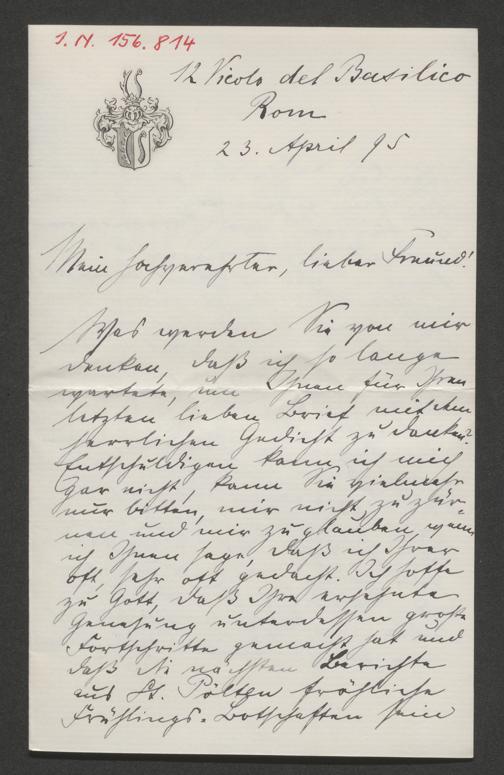 J. N. 156.814
12 Vicolo del Basilico
Rom
23. April 95
Mein hochverehrter, lieber Freund!
Was werden Sie von mir
denken, daß ich so lange
wartete, um Ihnen für Ihren
letzten lieben Brief mit dem
herrlichen Gedicht zu danken?
Entschuldigen kann ich mich
gar nicht, kann Sie vielmehr
nur bitten, mir nicht zu zür-
nen und mir zu glauben, wenn
ich Ihnen sage, daß ich Ihrer
oft, sehr oft gedacht. Ich hoffe
zu Gott, daß Ihre ersehnte
Genesung unterdessen große
Fortschritte gemacht hat und
daß die nächsten Berichte
aus St. Pölten fröhliche
Frühlings-Botschaften sein